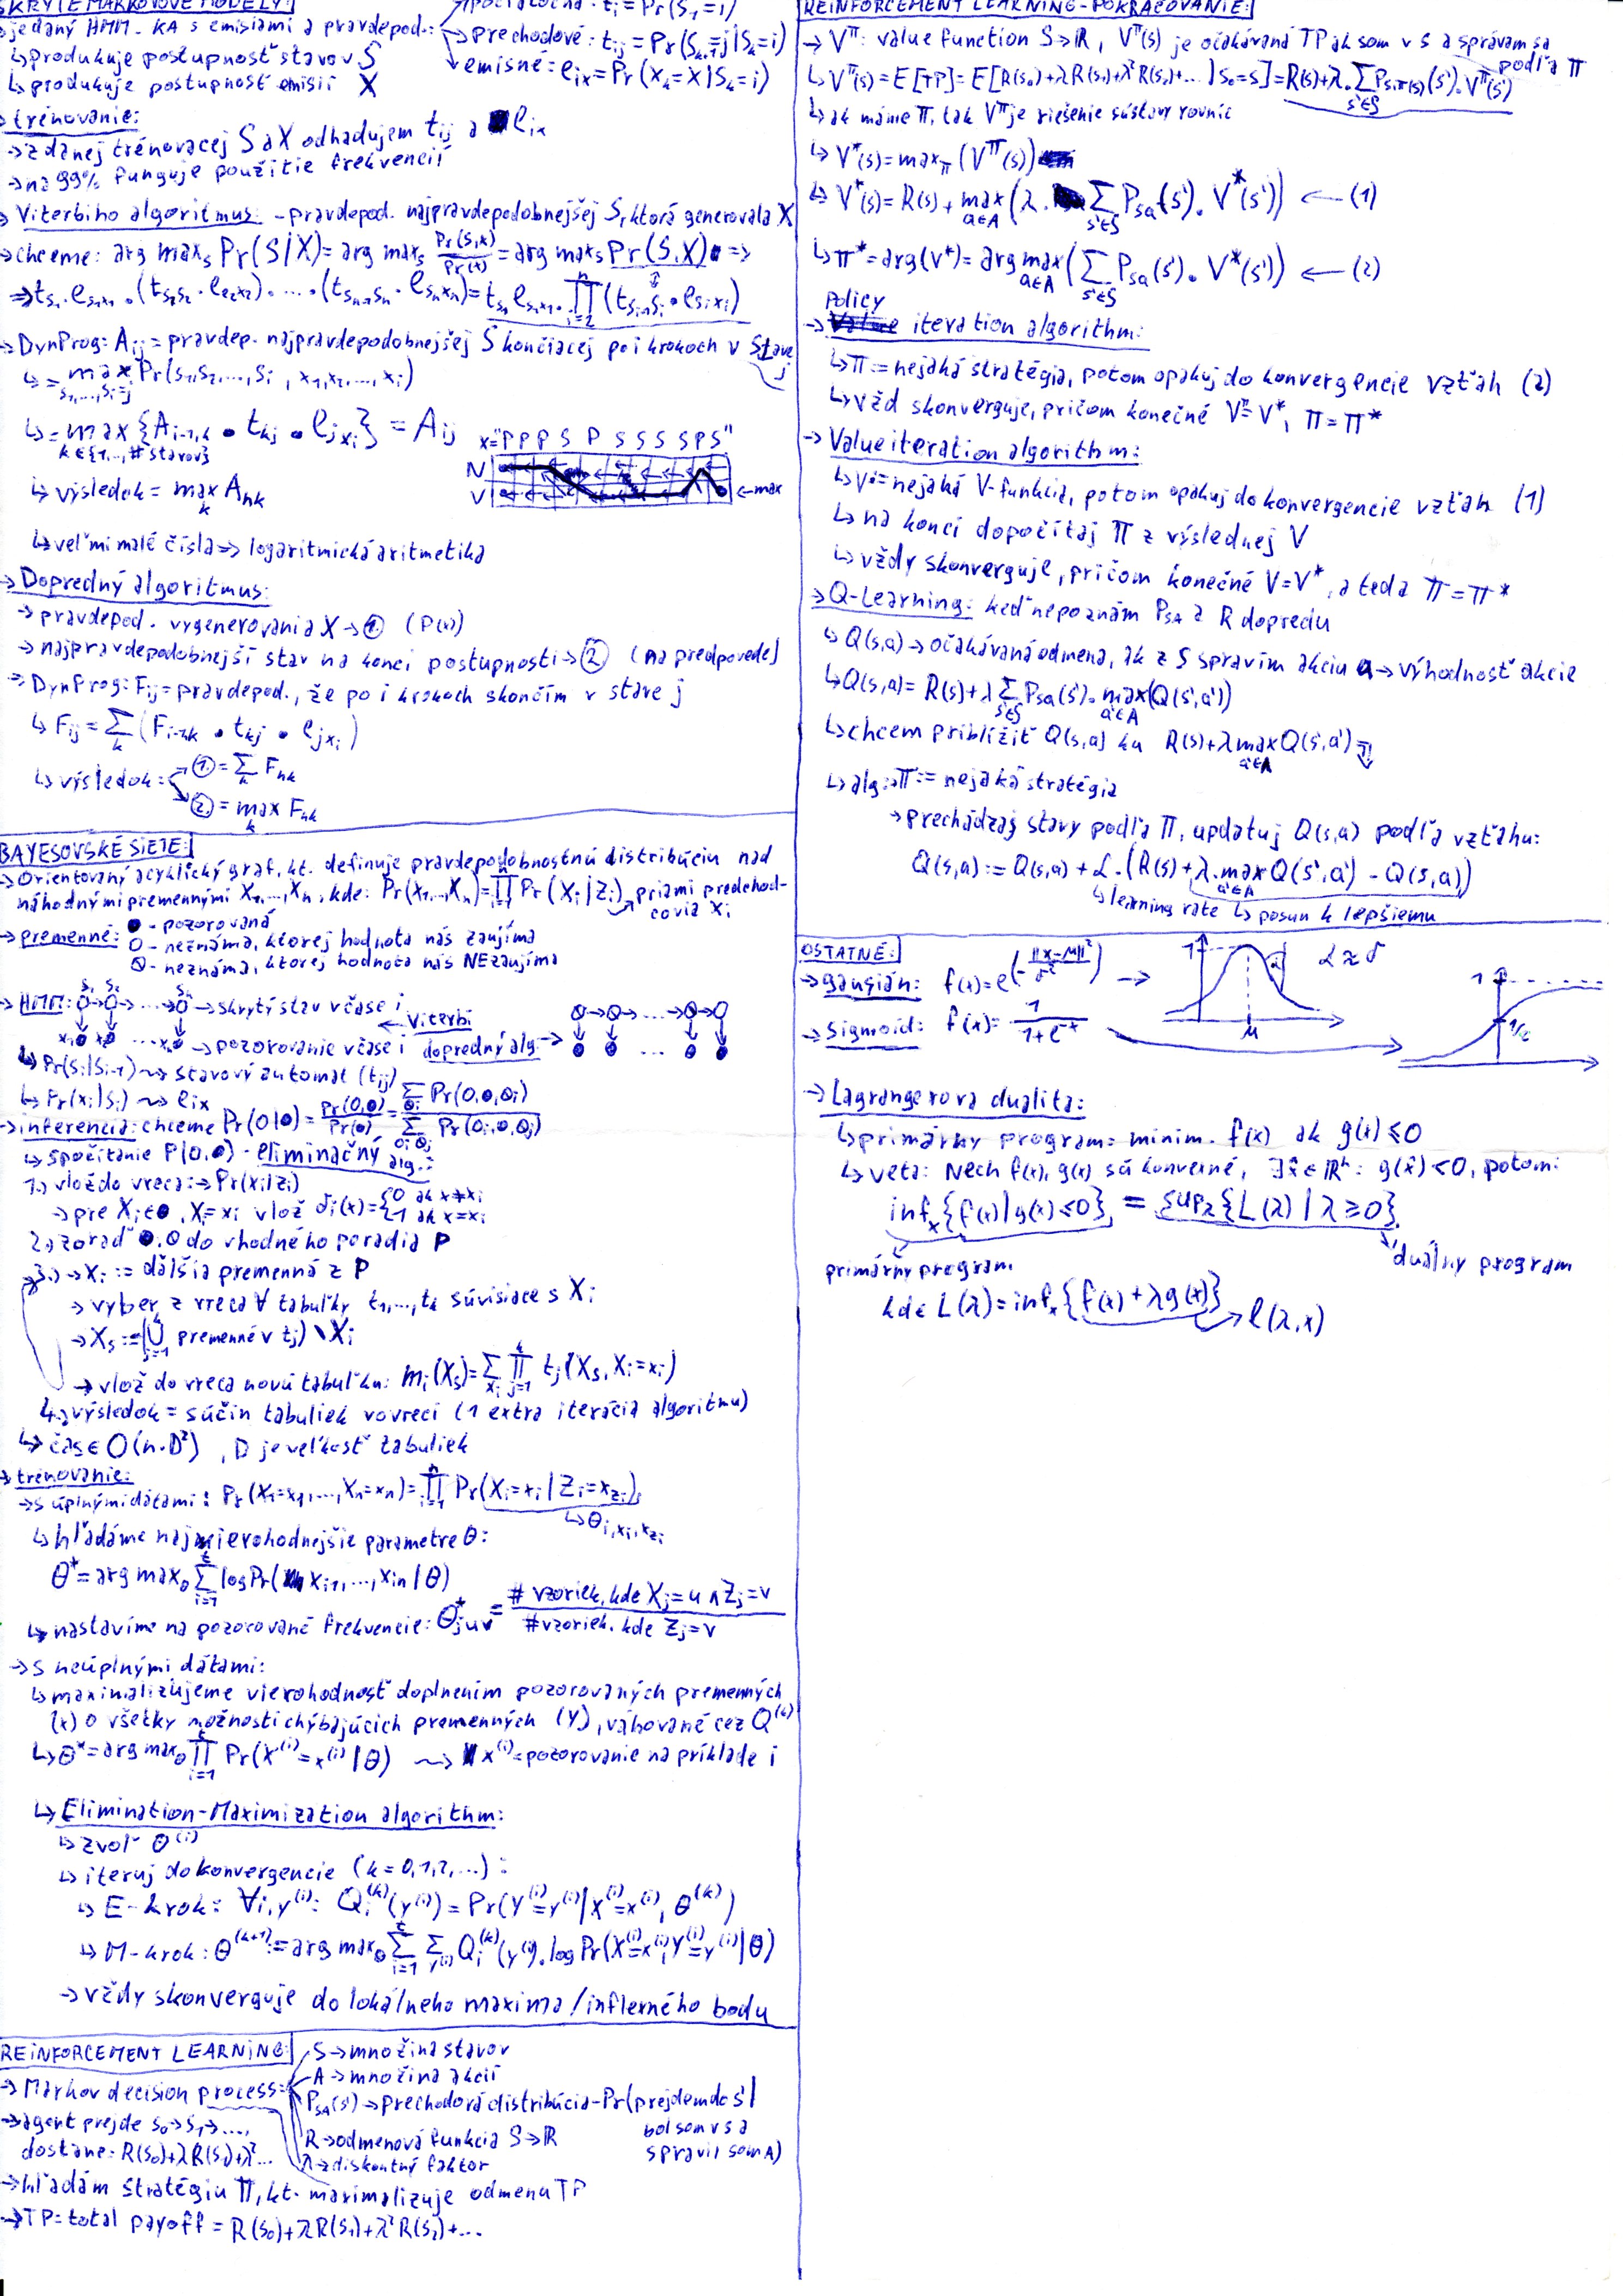 SKRYTÉ MARKOVOVE MODELY:
→ je daný HMM - KA s emisiami a pravdepod.:
→ počiatočná: t_i = Pr(S_1=i)
→ prechodové: t_ij = Pr(S_k+1=j|S_k=i)
→ emisné: e_ix = Pr(x_k=x|S_k=i)
↳ produkuje postupnosť stavov S
↳ produkuje postupnosť emisií X
→ trénovanie:
→ z danej trénovacej S a X odhadujem t_ij a e_ix
→ na 99% funguje použitie frekvencií
→ Viterbiho algoritmus - pravdepod. najpravdepodobnejšej S, ktorá generovala X
→ chceme: arg max_S Pr(S|X) = arg max_S Pr(S,X)/Pr(X) = arg max_S Pr(S,X) ⇒
⇒ t_s1 . e_s1x1 . (t_s1s2 . e_s2x2) . ... . (t_sn-1sn . e_snxn) = t_s1 e_s1x1 . ∏_{i=2}^n (t_si-1si . e_sixi)
→ DynProg: A_ij = pravdep. najpravdepodobnejšej S končiacej po i krokoch v stave j
↳ = max_{s1,...,si=j} Pr(s1,s2,...,si, x1,x2,...,xi)
↳ = max_{k∈{1,..,# stavov}} {A_i-1,k . t_kj . e_jxi} = A_ij
x="P P P S P S S S S P S"
N
V
← max
↳ výsledok = max_k A_nk
↳ veľmi malé čísla ⇒ logaritmická aritmetika
→ Dopredný algoritmus:
→ pravdepod. vygenerovania X → ① (P(x))
→ najpravdepodobnejší stav na konci postupnosti → ② (na predpovede)
→ DynProg: F_ij = pravdepod., že po i krokoch skončím v stave j
↳ F_ij = ∑_k (F_i-1,k . t_kj . e_jxi)
↳ výsledok:
① = ∑_k F_nk
② = max_k F_nk
BAYESOVSKÉ SIETE:
→ Orientovaný acyklický graf, kt. definuje pravdepodobnostnú distribúciu nad
náhodnými premennými X_1,..,X_n, kde: Pr(X_1,..,X_n) = ∏_{i=1}^n Pr(X_i|Z_i) → priami predchodcovia X_i
→ premenné: ● - pozorovaná
O - neznáma, ktorej hodnota nás zaujíma
⊘ - neznáma, ktorej hodnota nás NEzaujíma
→ HMM: S_1 S_2 ... S_n → skrytý stav v čase i
← Viterbi
x_1 x_2 ... x_n → pozorovanie v čase i dopredný alg. →
↳ Pr(s_i|s_i-1) ⇝ stavový automat (t_ij)
↳ Pr(x_i|s_i) ⇝ e_ix
→ inferencia: chceme Pr(O|●) = Pr(O,●)/Pr(●) = ∑_{⊘i} Pr(O,●,⊘_i) / ∑_{Oi ⊘j} Pr(O_i,●,⊘_j)
↳ spočítanie P(O,●) - eliminačný alg.:
1.) vlož do vreca: → Pr(X_i|Z_i)
→ pre X_i∈●, X_i=x_i vlož δ_i(x) = {0 ak x≠x_i 1 ak x=x_i
2.) zoraď ●,⊘ do vhodného poradia P
3.) → X_i := ďalšia premenná z P
→ vyber z vreca ∀ tabuľky t_1,...,t_k súvisiace s X_i
→ X_S := (⋃_{j=1}^k premenné v t_j) \ X_i
→ vlož do vreca novú tabuľku: m_i(X_S) = ∑_{xi} ∏_{j=1}^k t_j(X_S, X_i=x_i)
4.) výsledok = súčin tabuliek vo vreci (1 extra iterácia algoritmu)
↳ čas ∈ O(n.D²), D je veľkosť tabuliek
→ trénovanie:
→ s úplnými dátami: Pr(X_1=x_1,...,X_n=x_n) = ∏_{i=1}^n Pr(X_i=x_i|Z_i=x_zi)
↳ θ_i,xi,xzi
↳ hľadáme najvierohodnejšie parametre θ:
θ* = arg max_θ ∑_{i=1}^t log Pr(x_i1,...,x_in|θ)
↳ nastavíme na pozorované frekvencie: θ*_juv = # vzoriek, kde X_j=u ∧ Z_j=v / # vzoriek, kde Z_j=v
→ s neúplnými dátami:
↳ maximalizujeme vierohodnosť doplnením pozorovaných premenných
(x) o všetky možnosti chýbajúcich premenných (Y), váhované cez Q^(k)
↳ θ* = arg max_θ ∏_{i=1}^t Pr(X^(i)=x^(i)|θ) ⇝ x^(i) = pozorovanie na príklade i
↳ Elimination-Maximization algorithm:
↳ zvoľ θ^(i)
↳ iteruj do konvergencie (k=0,1,2,...):
↳ E-krok: ∀i,y^(i): Q_i^(k)(y^(i)) = Pr(Y^(i)=y^(i)|X^(i)=x^(i), θ^(k))
↳ M-krok: θ^(k+1) := arg max_θ ∑_{i=1}^t ∑_{y^(i)} Q_i^(k)(y^(i)).log Pr(X^(i)=x^(i),Y^(i)=y^(i)|θ)
→ vždy skonverguje do lokálneho maxima/inflexného bodu
REINFORCEMENT LEARNING:
→ Markov decision process:
S → množina stavov
A → množina akcií
P_SA(s') → prechodová distribúcia - Pr(prejdem do s' | bol som v s a spravil som A)
R → odmenová funkcia S→ℝ
λ → diskontný faktor
→ agent prejde s_0→s_1→...,
dostane: R(s_0)+λR(s_1)+λ²...
→ hľadám stratégiu π, kt. maximalizuje odmenu TP
→ TP = total payoff = R(s_0)+λR(s_1)+λ²R(s_2)+...
REINFORCEMENT LEARNING - POKRAČOVANIE:
→ V^π: value function S→ℝ, V^π(s) je očakávaná TP ak som v s a správam sa podľa π
↳ V^π(s) = E[TP] = E[R(s_0)+λR(s_1)+λ²R(s_2)+...|s_0=s] = R(s)+λ.∑_{s'∈S} P_s,π(s)(s').V^π(s')
↳ ak máme π, tak V^π je riešenie sústavy rovníc
↳ V*(s) = max_π(V^π(s))
↳ V*(s) = R(s) + max_{a∈A} (λ.∑_{s'∈S} P_sa(s').V*(s')) ← (1)
↳ π* = arg(V*) = arg max_{a∈A} (∑_{s'∈S} P_sa(s').V*(s')) ← (2)
→ Policy iteration algorithm:
↳ π := nejaká stratégia, potom opakuj do konvergencie vzťah (2)
↳ vžd skonverguje, pričom konečné V^π=V*, π=π*
→ Value iteration algorithm:
↳ V := nejaká V-funkcia, potom opakuj do konvergencie vzťah (1)
↳ na konci dopočítaj π z výslednej V
↳ vždy skonverguje, pričom konečné V=V*, a teda π=π*
→ Q-Learning: keď nepoznám P_SA a R dopredu
↳ Q(s,a) → očakávaná odmena, ak z S spravím akciu a → výhodnosť akcie
↳ Q(s,a) = R(s)+λ∑_{s'∈S} P_sa(s').max_{a'∈A}(Q(s',a'))
↳ chcem priblížiť Q(s,a) ku R(s)+λ max_{a'∈A} Q(s',a') ⇒
↳ alg.: π := nejaká stratégia
→ prechádzaj stavy podľa π, updatuj Q(s,a) podľa vzťahu:
Q(s,a) := Q(s,a) + α.(R(s)+λ.max_{a'∈A} Q(s',a') - Q(s,a))
↳ learning rate ↳ posun k lepšiemu
OSTATNÉ:
→ gaussián: f(x) = e^(-||x-μ||²/σ²) →
1 μ α
α ≈ σ
→ sigmoid: f(x) = 1/(1+e^-x)
1
1/2
→ Lagrangerova dualita:
↳ primárny program: minim. f(x) ak g(x)≤0
↳ veta: Nech f(x), g(x) sú konvexné, ∃x̂∈ℝⁿ: g(x̂)<0, potom:
inf_x{f(x)|g(x)≤0} = sup_λ{L(λ)|λ≥0}
primárny program
duálny program
kde L(λ) = inf_x{f(x)+λg(x)} → l(λ,x)